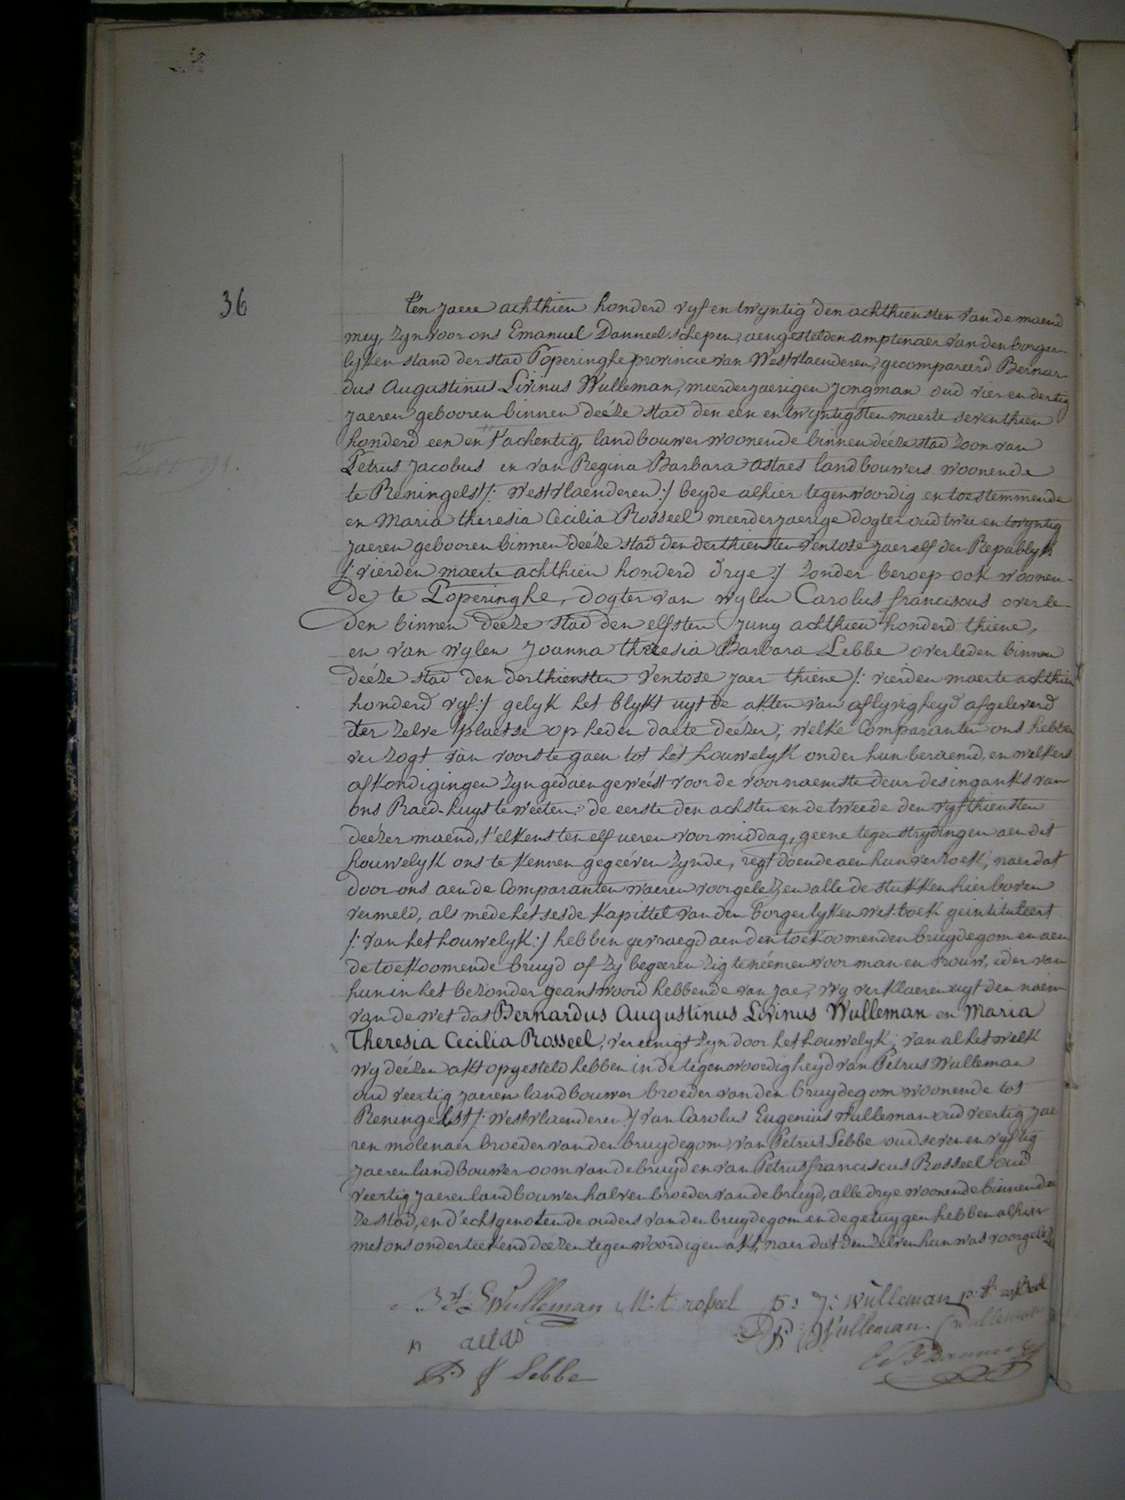 36
Ten jaere achthien honderd vyf en twyntig den achthiensten van de maend
mey, zyn voor ons Emanuel Danneel schepen, aengestelden amptenaer van den borger-
lyken stand der stad Poperinghe provincie van Westvlaenderen, gecompareerd Bernar-
dus Augustinus Livinus Wulleman, meerderjaerigen jongman oud vier en dertig
jaeren gebooren binnen deéze stad den een en twyntigsten maerte seventhien
honderd een en t'achentig, landbouwer woonende binnen deéze stad zoon van
Petrus Jacobus en van Regina Barbara Astaes landbouwers woonende
te Reningelst /: Westvlaenderen :/ beyde alhier tegenwoordig en toestemmende
en Maria theresia Cecilia Rosseel meerderjaerige dogter oud twee en twyntig
jaeren gebooren binnen deéze stad den derthiensten ventose jaer elf der Republyk
/: vierden maerte achthien honderd drye :/ zonder beroep ook woonen-
de te Poperinghe, dogter van wylen Carolus franciscus overle-
den binnen deéze stad den elfsten juny achthien honderd thiene,
en van wylen Joanna theresia Barbara Lebbe overleden binnen
deéze stad den derthiensten ventose jaer thiene /: vierden maerte achthien
honderd vyf :/ gelyk het blykt uyt de akten van aflyvigheyd afgeleverd
ter zelve plaetse op heden daete deézer, welke Comparanten ons hebben
verzogt van voorste gaen tot het houwelyk onder hun beraemd, en welkers
afkondigingen zyn gedaen geweést voor de voornaemste deur des inganks van
ons Raed-huys te weeten: de eerste den achsten en de tweede den vyfthiensten
deézer maend, t'elkens ten elf ueren voormiddag, geene tegenstrydingen aen dit
houwelyk ons te kennen gegeéven zynde, regt doende aen hun verzoek, naer dat
door ons aen de Comparanten waeren voorgelezen alle de stukken hier boven
vermeld, als mede het sesde kapittel van den borgerlyken wet-boek geintituleert
/: van het houwelyk :/ hebben gevraegd aen den toekoomenden bruydegom en aen
de toekoomende bruyd of zy begeeren zig te neémen voor man en vrouw, ider van
hun in het bezonder geantwoord hebbende van jae, wy verklaeren uyt den naem
van de wet dat Bernardus Augustinus Livinus Wulleman en Maria
Theresia Cecilia Rosseel, vereenigt zyn door het houwelyk, van al het welk
wy deézen akt opgesteld hebben in de tegenwoordigheyd van Petrus Wulleman
oud veertig jaeren landbouwer broeder van den bruydegom woonende tot
Reningelst /: Westvlaenderen :/ van Carolus Eugenius wulleman oud veertig jae-
ren molenaer broeder van den bruydegom, van Petrus Lebbe oud seven en vyftig
jaeren landbouwer oom van de bruyd en van Petrus franciscus Rosseel oud
veertig jaeren landbouwer halven broeder van de bruyd, alle drye woonende binnen dee-
ze stad, en d'echtgenoten de ouders van den bruydegom en de getuygen hebben alhier
met ons onderteekend deezen tegenwoordigen akt, naer dat den zelven hun was voorgelezen
Wulleman M: t. rosseel P: J: wulleman p: f: rosseel
P: Wulleman. wulleman
P. J Lebbe